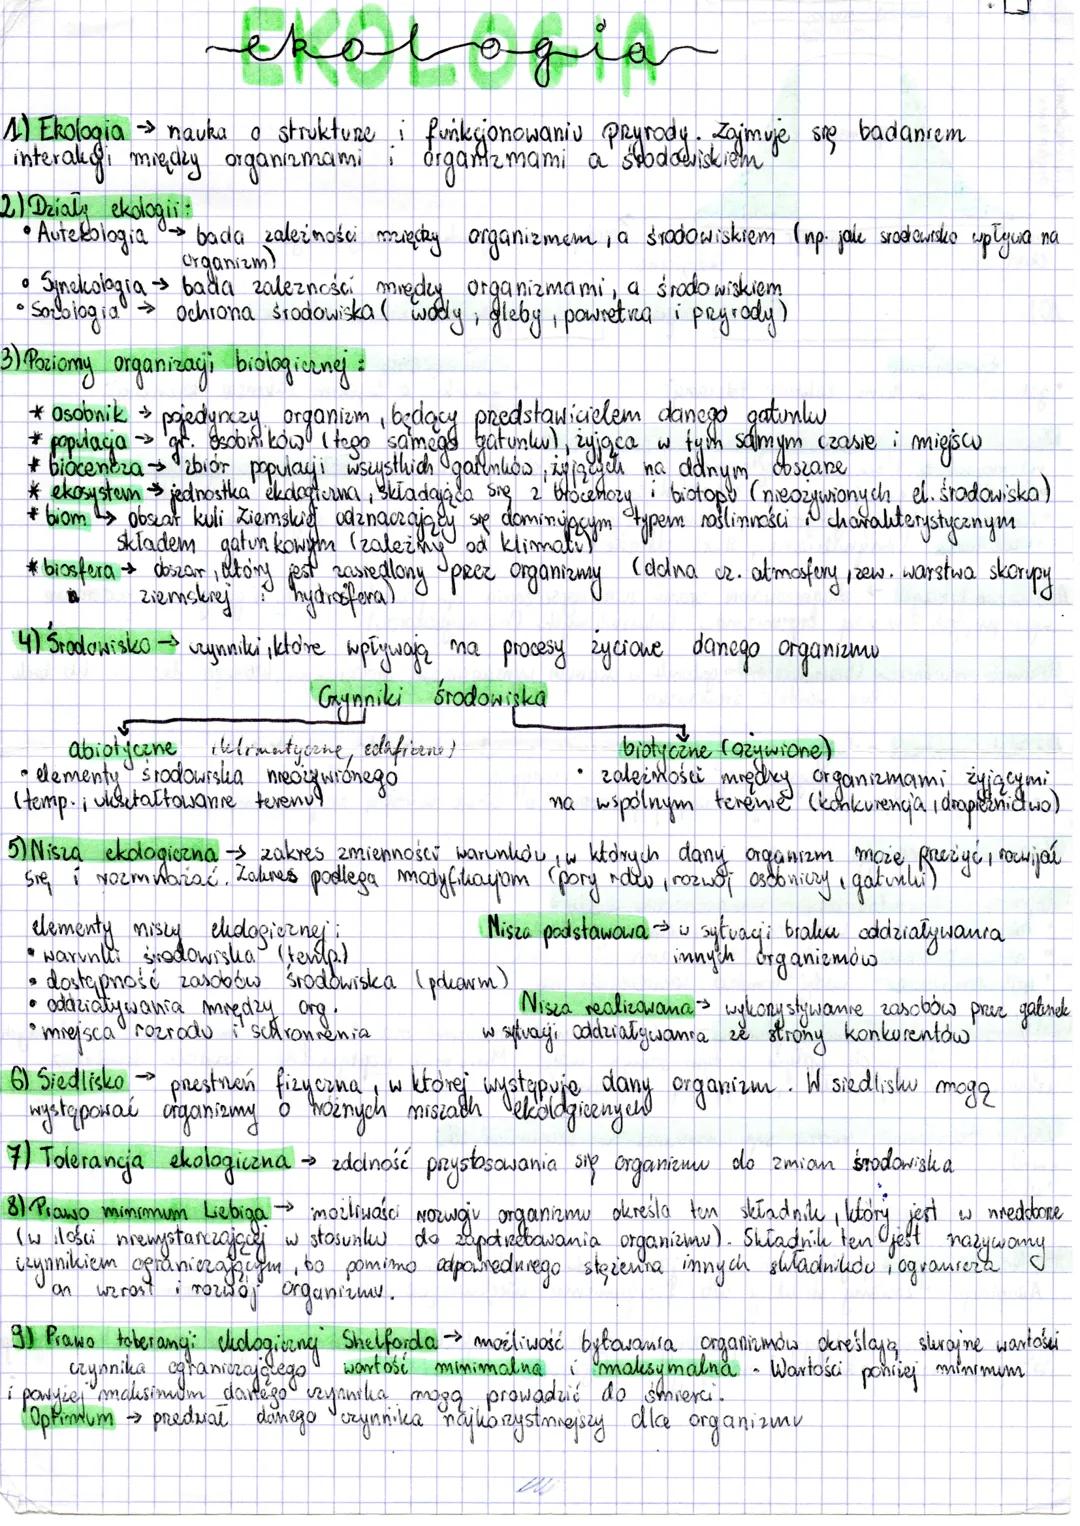 EKOLOGIA
ekologia
1) Ekologia → nauka o strukturze i funkcjonowaniu przyrody. Zajmuje się badaniem
interakcji między organizmami i organizmami a środowiskiem
2) Działy ekologii:
• Autekologia → bada zależności między organizmem, a środowiskiem (np. jak środowisko wpływa na
organizm)
• Synekologia → bada zależności między organizmami, a środowiskiem
• Sozologia → ochrona środowiska (wody, gleby, powietrza i przyrody)
3) Poziomy organizacji biologicznej:
* osobnik → pojedynczy organizm, będący przedstawicielem danego gatunku
* populacja → gr. osobników (tego samego gatunku), żyjąca w tym samym czasie i miejscu
* biocenoza → zbiór populacji wszystkich gatunków, żyjących na danym obszarze
* ekosystem → jednostka ekologiczna, składająca się z biocenozy i biotopu (nieożywionych el. środowiska)
* biom → obszar kuli Ziemskiej odznaczający się dominującym typem roślinności i charakterystycznym
składem gatunkowym (zależny od klimatu)
* biosfera → obszar, który jest zasiedlony przez organizmy (dolna cz. atmosfery, zew. warstwa skorupy
ziemskiej i hydrosfera)
4) Środowisko → czynniki, które wpływają na procesy życiowe danego organizmu
Czynniki środowiska
abiotyczne (klimatyczne, edaficzne) biotyczne (ożywione)
• elementy środowiska nieożywionego • zależności między organizmami żyjącymi
(temp., ukształtowanie terenu) na wspólnym terenie (konkurencja, drapieżnictwo)
5) Nisza ekologiczna → zakres zmienności warunków, w których dany organizm może przeżyć, rozwijać
się i rozmnażać. Zakres podlega modyfikacjom (pory roku, rozwój osobniczy, gatunki)
elementy niszy ekologicznej: Nisza podstawowa → w sytuacji braku oddziaływania
• warunki środowiska (temp.) innych organizmów
• dostępność zasobów środowiska (pokarm)
• oddziaływania między org. Nisza realizowana → wykorzystywanie zasobów przez gatunek
• miejsca rozrodu i schronienia w sytuacji oddziaływania ze strony konkurentów
6) Siedlisko → przestrzeń fizyczna, w której występuje dany organizm. W siedlisku mogą
występować organizmy o różnych niszach ekologicznych
7) Tolerancja ekologiczna → zdolność przystosowania się organizmu do zmian środowiska
8) Prawo minimum Liebiga → możliwości rozwoju organizmu określa ten składnik, który jest w niedoborze
(w ilości niewystarczającej w stosunku do zapotrzebowania organizmu). Składnik ten jest nazywany
czynnikiem ograniczającym, bo pomimo odpowiedniego stężenia innych składników, ogranicza
on wzrost i rozwój organizmu.
9) Prawo tolerancji ekologicznej Shelforda → możliwość bytowania organizmów określają skrajne wartości
czynnika ograniczającego wartość minimalna i maksymalna. Wartości poniżej minimum
i powyżej maksimum danego czynnika mogą prowadzić do śmierci.
Optimum → przedział danego czynnika najkorzystniejszy dla organizmu